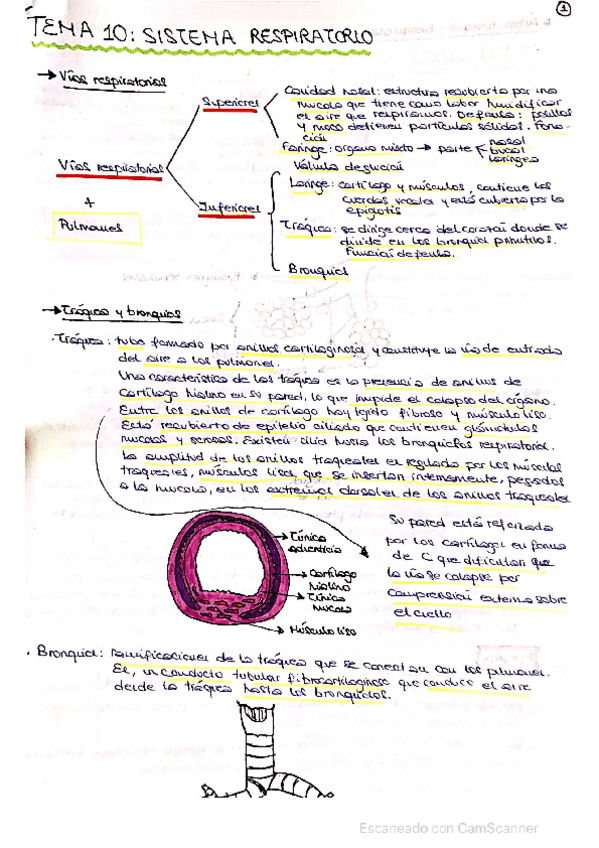 1
TEMA 10: SISTEMA RESPIRATORIO
→ Vías respiratorias
Vías respiratorias
+
Pulmones
Superiores
Cavidad nasal: estructura recubierta por una
mucosa que tiene como labor humidificar
el aire que respiramos. Defensa: pelillos
y moco detienen partículas sólidas. Fona-
ción
Faringe: órgano mixto → parte
nasal
bucal
laríngea
Válvula deglución
Inferiores
Laringe: cartílago y músculos, contiene las
cuerdas vocales y está cubierta por la
epiglotis
Tráquea: se dirige cerca del corazón donde se
divide en los bronquios primitivos.
Función defensa.
Bronquios
→ Tráquea y bronquios
· Tráquea: tubo formado por anillos cartilaginosos y constituye la vía de entrada
del aire a los pulmones.
Una característica de las tráquea es la presencia de anillos de
cartílago hialino en su pared, lo que impide el colapso del órgano.
Entre los anillos de cartílago hay tejido fibroso y músculo liso.
Está recubierto de epitelio ciliado que contienen glándulas
mucosas y serosas. Existen cilia hasta los bronquiolos respiratorios.
La amplitud de los anillos traqueales es regulada por los músculos
traqueales, músculos lisos, que se insertan internamente, pegados
a la mucosa, en los extremos dorsales de los anillos traqueales
Túnica
adventicia
Cartílago
hialino
Túnica
mucosa
Músculo liso
Su pared está reforzada
por los cartílagos en forma
de C que dificultan que
la vía se colapse por
compresión externa sobre
el cuello
· Bronquios: ramificaciones de la tráquea que se conectan con los pulmones.
Es, un conducto tubular fibrocartilaginoso que conduce el aire
desde la tráquea hasta los bronquiolos.
Escaneado con CamScanner